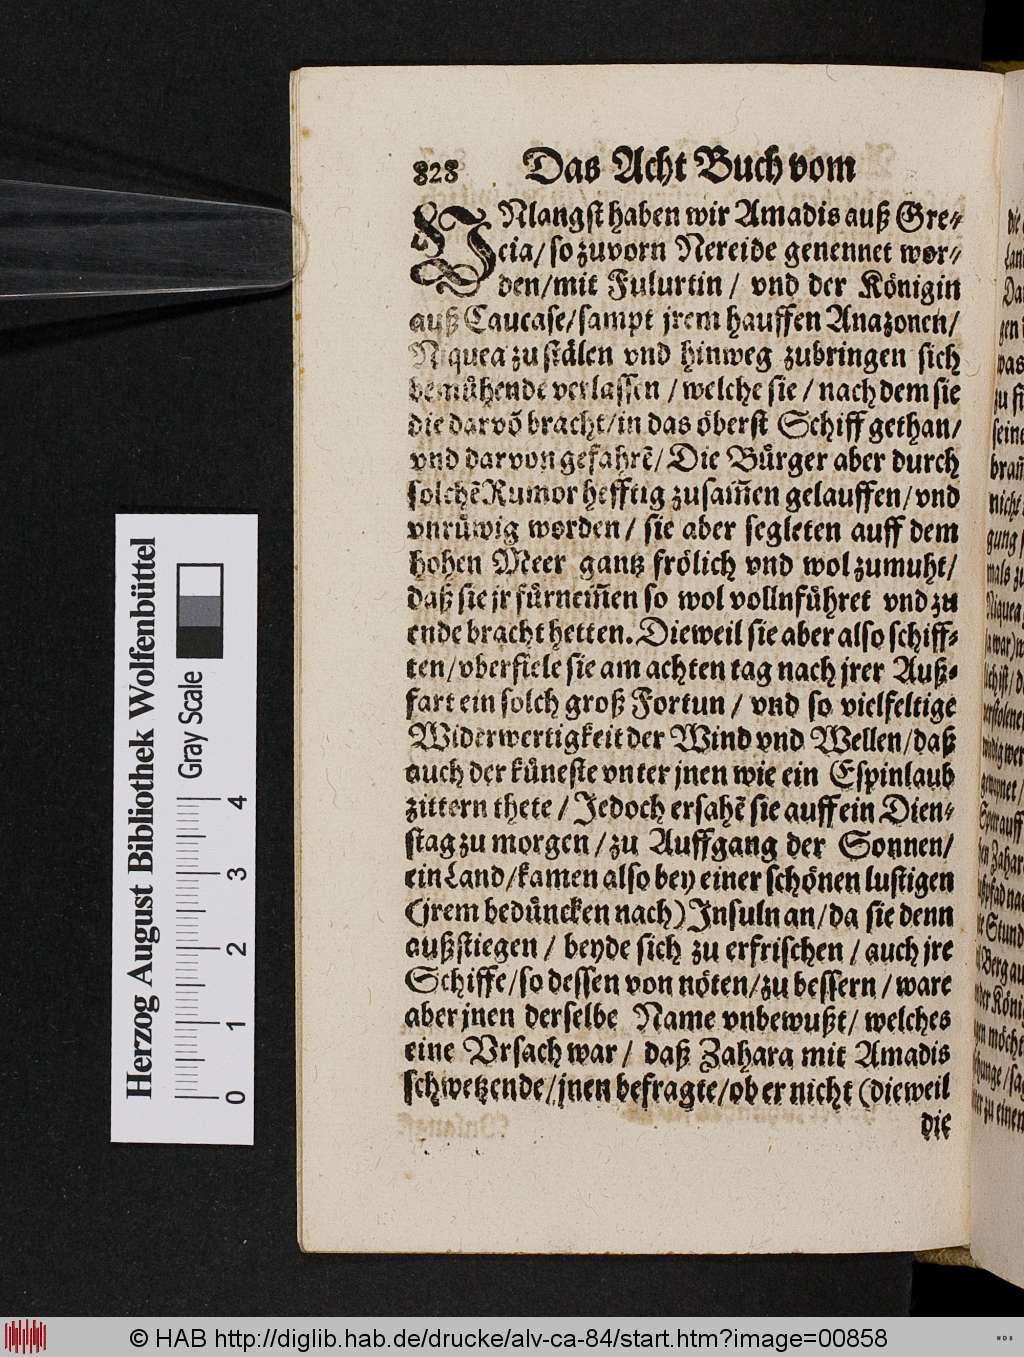 828 Das Acht Buch vom
VNlangst haben wir Amadis auß Gre-
cia/ so zuvorn Nereide genennet wor-
den/mit Fulurtin/ vnd der Königin
auß Caucase/sampt jrem hauffen Anazonen/
Niquea zu stälen vnd hinweg zubringen sich
bemühende verlassen/ welche sie/ nach dem sie
die darvõ bracht/in das öberst Schiff gethan/
vnd darvon gefahrẽ/ Die Bürger aber durch
solchẽ Rumor hefftig zusam̃en gelauffen/vnd
vnrüwig worden/ sie aber segleten auff dem
hohen Meer gantz frölich vnd wol zumuht/
daß sie jr fürnem̃en so wol vollnführet vnd zu
ende bracht hetten. Dieweil sie aber also schiff-
ten/vberfiele sie am achten tag nach jrer Auß-
fart ein solch groß Fortun/ vnd so vielfeltige
Widerwertigkeit der Wind vnd Wellen/daß
auch der küneste vnter jnen wie ein Espinlaub
zittern thete/ Jedoch ersahẽ sie auff ein Dien-
stag zu morgen/zu Auffgang der Sonnen/
ein Land/kamen also bey einer schönen lustigen
(jrem bedüncken nach) Insuln an/da sie denn
außstiegen/ beyde sich zu erfrischen/auch jre
Schiffe/so dessen von nöten/zu bessern/ware
aber jnen derselbe Name vnbewußt/ welches
eine Vrsach war/ daß Zahara mit Amadis
schwetzende/jnen befragte/ob er nicht (dieweil
die
Herzog August Bibliothek Wolfenbüttel
Gray Scale
0 1 2 3 4
© HAB http://diglib.hab.de/drucke/alv-ca-84/start.htm?image=00858